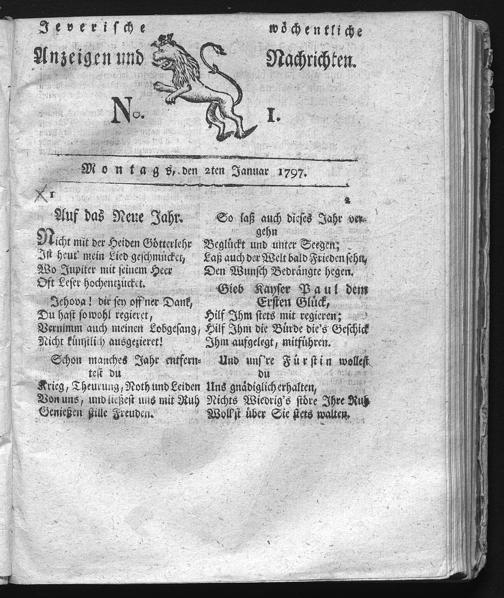 Jeverische wöchentliche
Anzeigen und Nachrichten.
No. 1.
Montags, den 2ten Januar 1797.
1
Auf das Neue Jahr.
Nicht mit der Heiden Götterlehr
Ist heut' mein Lied geschmücket,
Wo Jupiter mit seinem Heer
Oft Leser hochentzücket.
Jehova! dir sey off'ner Dank,
Du hast so wohl regieret,
Vernimm auch meinen Lobgesang,
Nicht künstlich ausgezieret!
Schon manches Jahr entfern-
test du
Krieg, Theurung, Noth und Leiden
Von uns, und ließest uns mit Ruh
Genießen stille Freuden.
2
So laß auch dieses Jahr ver-
gehn
Beglückt und unter Seegen;
Laß auch der Welt bald Frieden sehn,
Den Wunsch Bedrängte hegen.
Gieb Kayser Paul dem
Ersten Glück,
Hilf Ihm stets mit regieren;
Hilf Ihm die Bürde die's Geschick
Ihm aufgelegt, mitführen.
Und uns're Fürstin wollest
du
Uns gnädiglich erhalten,
Nichts Wiedrig's störe Ihre Ruh
Woll'st über Sie stets walten.